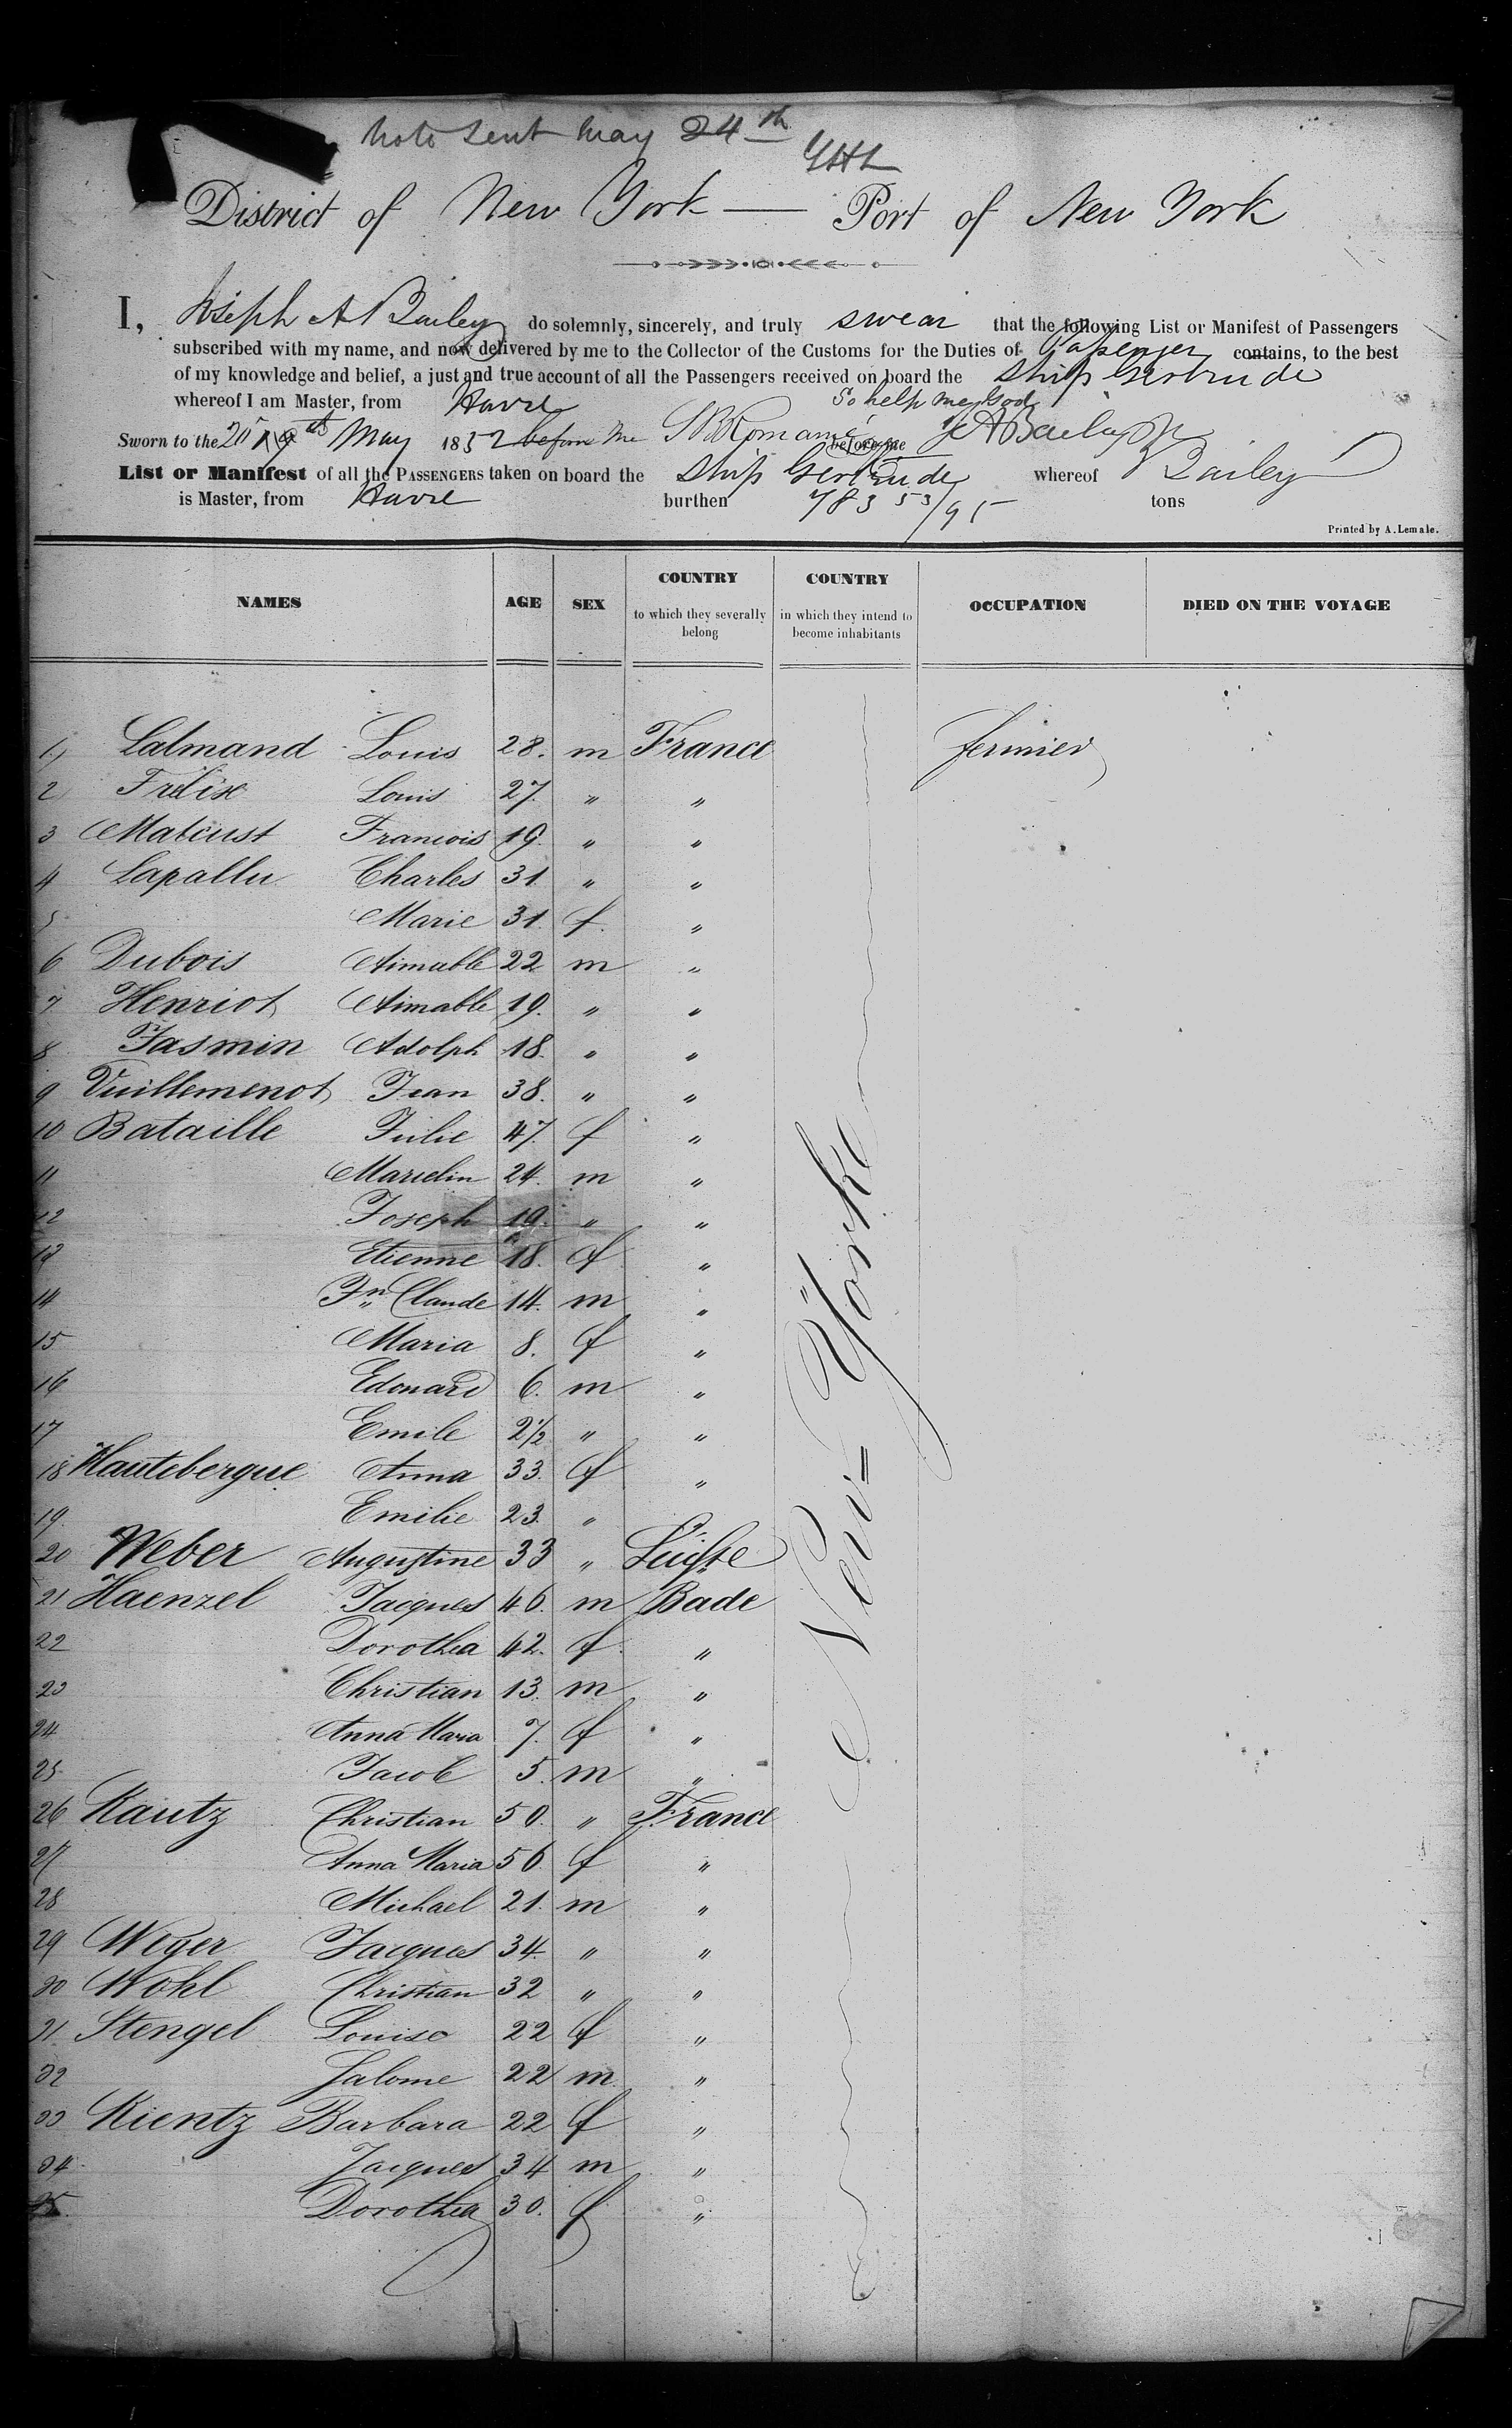 Note sent May 24th
District of New York — Port of New York
I, Joseph A Bailey do solemnly, sincerely, and truly swear that the following List or Manifest of Passengers
subscribed with my name, and now delivered by me to the Collector of the Customs for the Duties of Passenger contains, to the best
of my knowledge and belief, a just and true account of all the Passengers received on board the Ship Gertrude
whereof I am Master, from Havre So help me God
Sworn to the May 1852 before me before me J A Bailey
List or Manifest of all the PASSENGERS taken on board the Ship Gertrude whereof Bailey
is Master, from Havre burthen 783 53/95 tons
Printed by A. Lemale.
NAMES AGE SEX COUNTRY to which they severally belong COUNTRY in which they intend to become inhabitants OCCUPATION DIED ON THE VOYAGE
1 Lalmand Louis 28. m France fermier
2 Louis 27. " "
3 Francois 19. " "
4 Lapallu Charles 31 " "
5 Marie 31. f. "
6 Dubois Aimable 22 m "
7 Henriot Aimable 19. " "
8 Jasmin Adolph 18. " "
9 Vuillemenot Jean 38. " "
10 Bataille Julie 47. f "
11 Marielin 24. m "
12 Joseph 19. " "
13 Etienne 18. f "
14 Jn Claude 14. m "
15 Maria 8. f "
16 Edouard 6. m "
17 Emile 2½ " "
18 Hautebergue Anna 33. f "
19. Emilie 23. "
20 Weber Augustine 33 "
21 Haenzel Jacques 46. m Bade
22 Dorothea 42. f. "
23 Christian 13. m "
24 Anna Maria 7. f "
25 Jacob 5. m "
26 Kautz Christian 50. " France
27 Anna Maria 56. f "
28 Michael 21. m "
29 Weyer Jacques 34. " "
30 Wohl Christian 32 " "
31 Stengel Louise 22 f "
32 Salome 22 m "
33 Kientz Barbara 22 f "
34. Jacques 34 m "
35. Dorothea 30. f "
New-Yorke